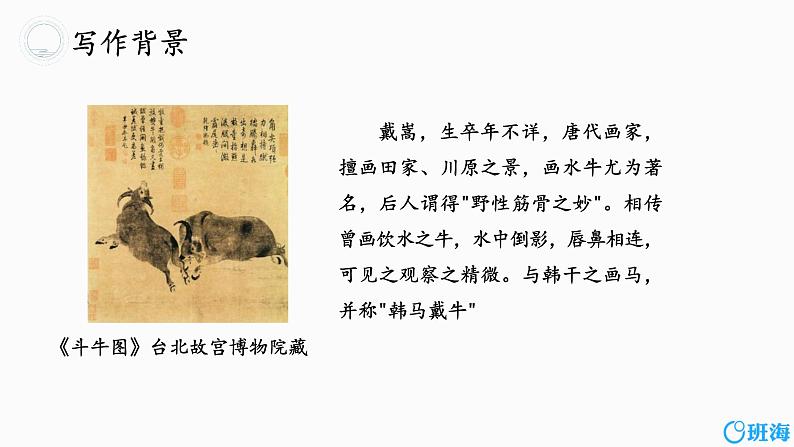 写作背景
戴嵩，生卒年不详，唐代画家，
擅画田家、川原之景，画水牛尤为著
名，后人谓得"野性筋骨之妙"。相传
曾画饮水之牛，水中倒影，唇鼻相连，
可见之观察之精微。与韩干之画马，
并称"韩马戴牛"
《斗牛图》台北故宫博物院藏
班海